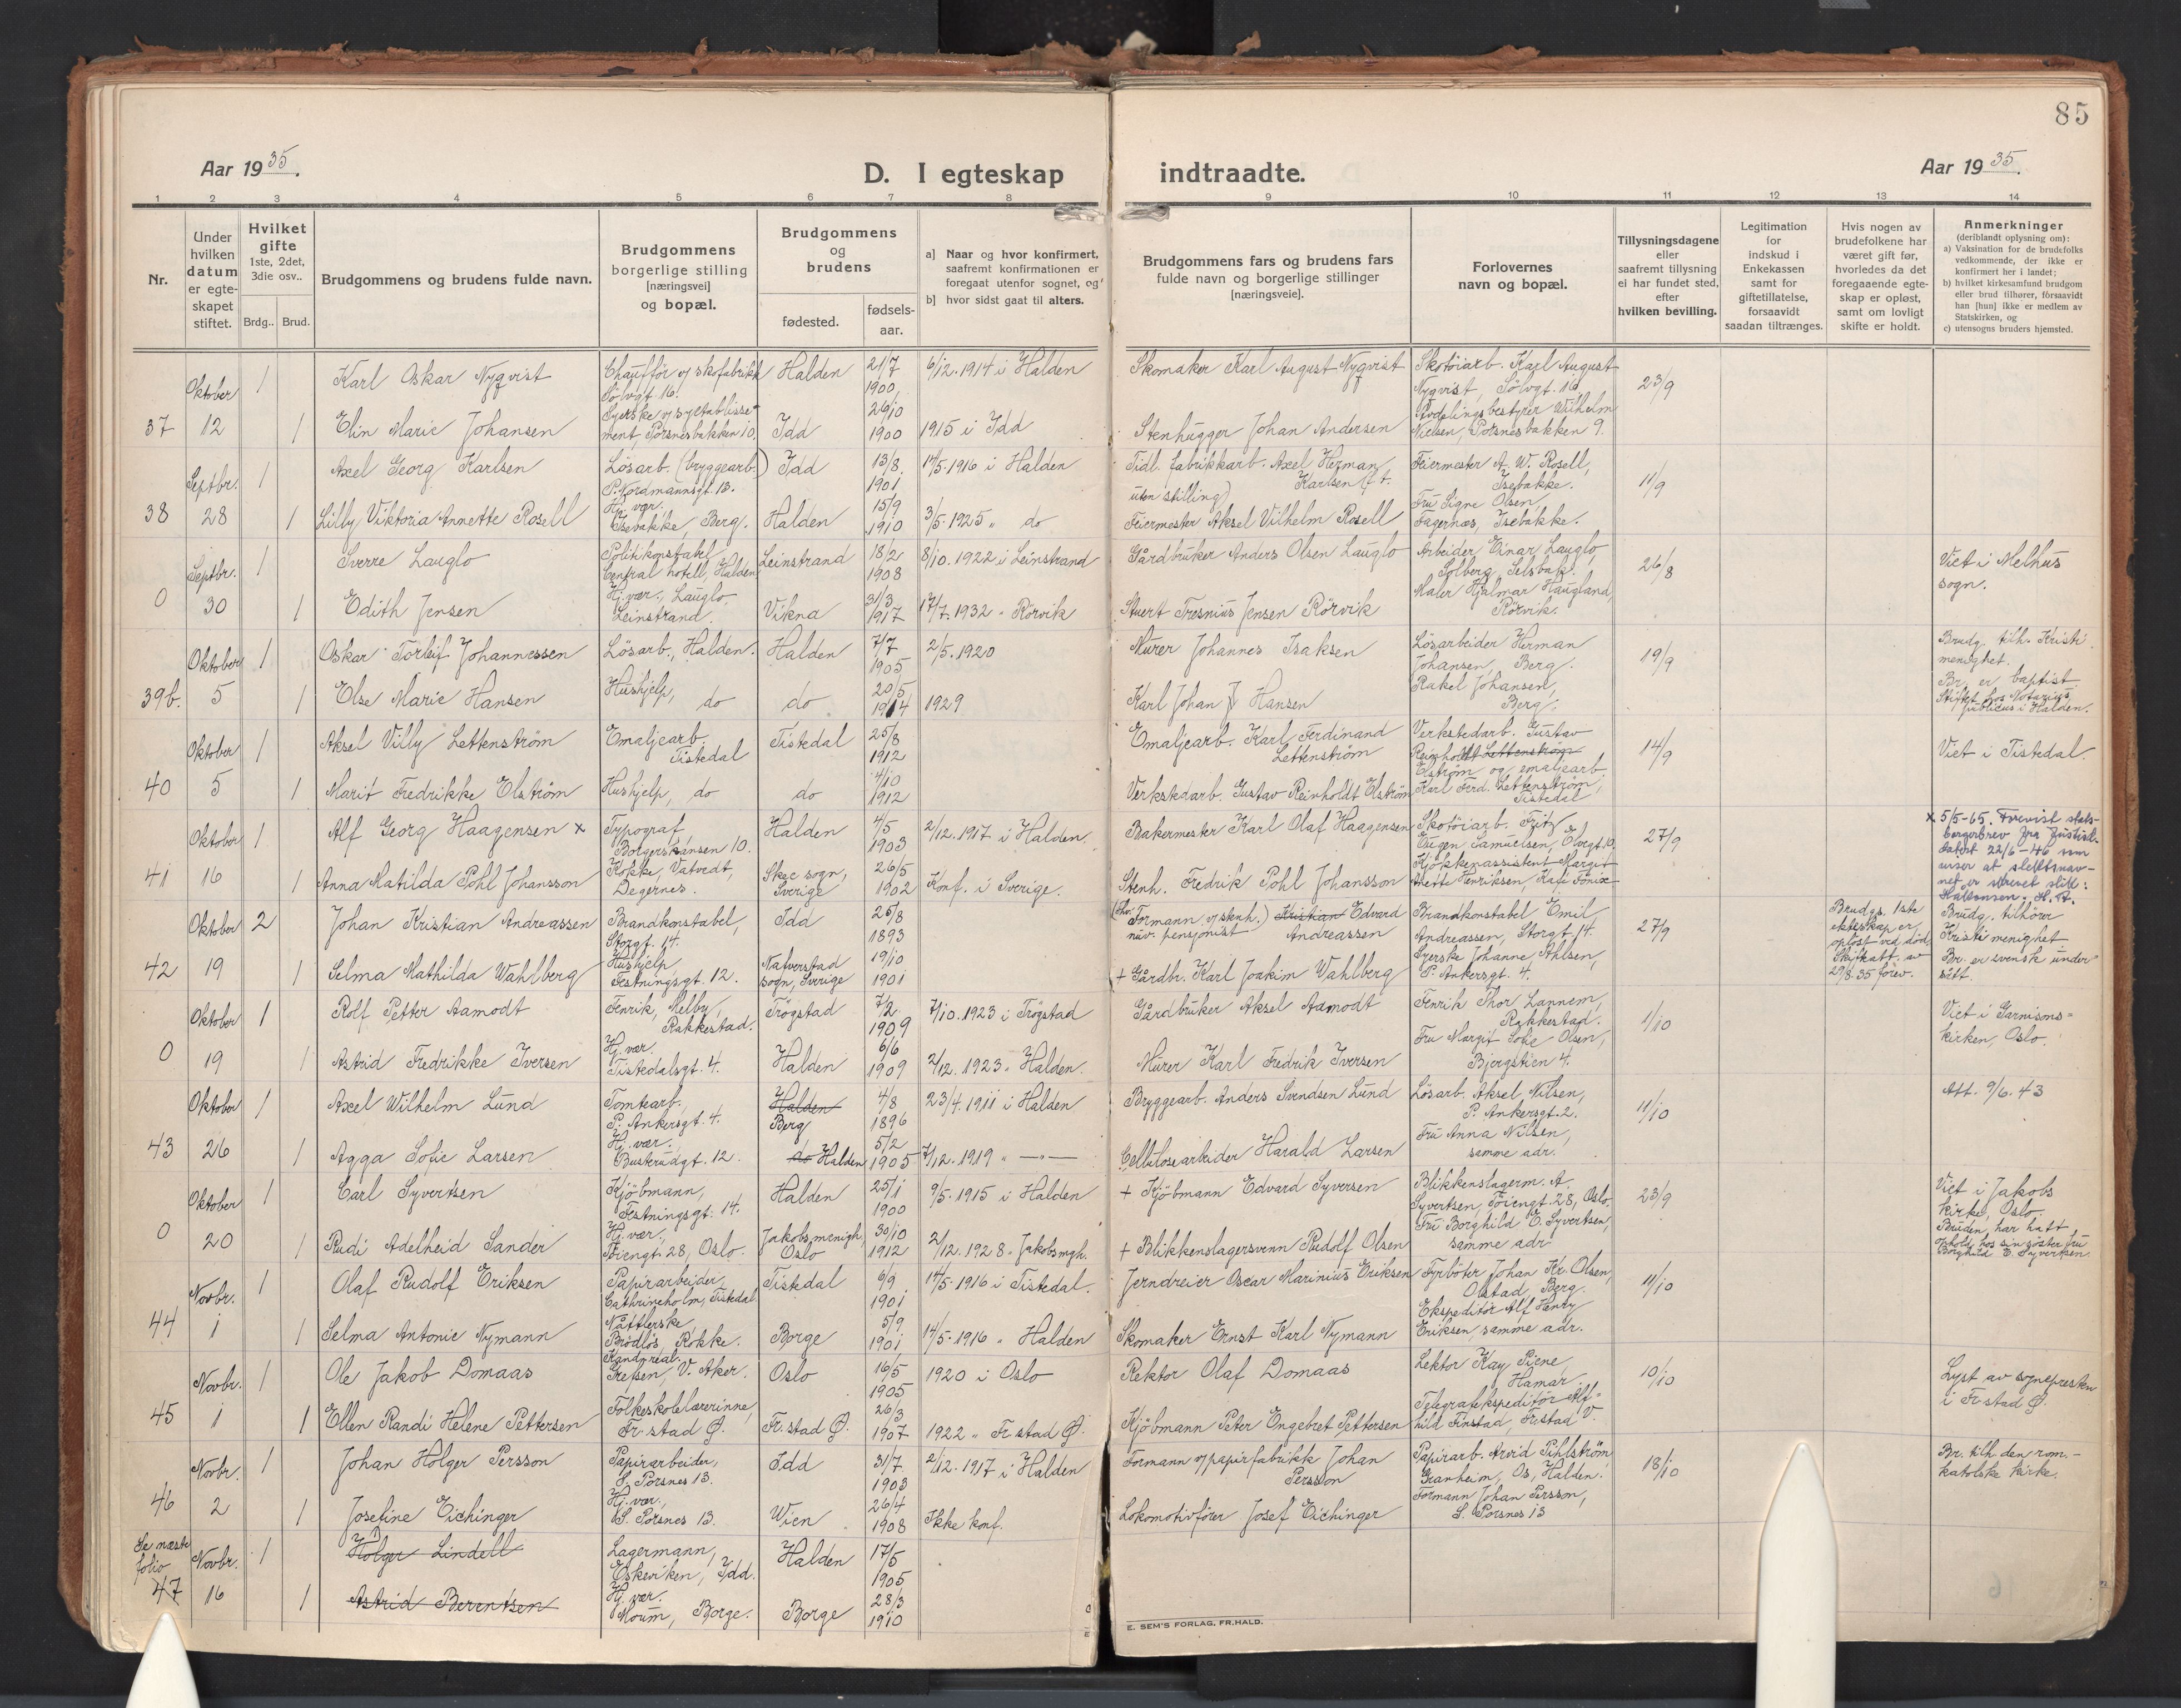 85
Aar 1935.
D. I egteskap indtraadte.
Aar 1935.
1 2 3 4 5 6 7 8 9 10 11 12 13 14
Nr.
Under hvilken datum er egteskapet stiftet.
Hvilket gifte 1ste, 2det, 3die osv..
Brdg.. Brud.
Brudgommens og brudens fulde navn.
Brudgommens borgerlige stilling [næringsvei] og bopæl.
Brudgommens og brudens
fødested. fødsels-aar.
a] Naar og hvor konfirmert, saafremt konfirmationen er foregaat utenfor sognet, og
b] hvor sidst gaat til alters.
Brudgommens fars og brudens fars fulde navn og borgerlige stillinger [næringsveie].
Forlovernes navn og bopæl.
Tillysningsdagene eller saafremt tillysning ei har fundet sted, efter hvilken bevilling.
Legitimation for indskud i Enkekassen samt for giftetillatelse, forsaavidt saadan tiltrænges.
Hvis nogen av brudefolkene har været gift før, hvorledes da det foregaaende egteskap er opløst, samt om lovligt skifte er holdt.
Anmerkninger (deriblandt oplysning om):
a) Vaksination for de brudefolks vedkommende, der ikke er konfirmert her i landet;
b) hvilket kirkesamfund brudgom eller brud tilhører, forsaavidt han [hun] ikke er medlem av Statskirken, og
c) utensogns bruders hjemsted.
37 Oktober 12 1 Karl Oskar Nyqvist Chauffør v/ skofabrikk Sölvgt. 16. Halden 21/7 1900 6/12. 1914 i Halden Skomaker Karl August Nyqvist Skotöiarb. Karl August Nyqvist, Sölvgt. 16 23/9
1 Elin Marie Johansen Syerske v/ syetablissement Porsnesbakken 10. Idd 26/10 1900 1915 i Idd Stenhugger Johan Andersen Avdelingsbestyrer Wilhelm Nielsen, Porsnesbakken 9.
38 Septbr. 28 1 Axel Georg Karlsen Lösarb. (bryggearb.) P. Nordmannsgt. 13. Idd 13/8. 1901 14/5. 1916 i Halden Tidl. fabrikkarb. Axel Herman Karlsen (f. t. uten stilling) Feiermester A. W. Rosell, Isebakke. 11/9
1 Lilly Viktoria Annette Rosell Hj. vær. Isebakke, Berg. Halden 15/9 1910 3/5. 1925 " do Feiermester Aksel Vilhelm Rosell Fru Signe Olsen, Fagernæs, Isebakke.
0 Septbr. 30 1 Sverre Lauglo Politikonstabel Central hotell, Halden Leinstrand 18/2 1908 8/10. 1922 i Leinstrand Gårdbruker Anders Olsen Lauglo Arbeider Einar Lauglo, Solberg, Selsbak. 26/8 Viet i Melhus sogn.
1 Edith Jensen Hj. vær., Lauglo, Leinstrand. Vikna 31/3 1917 17/7. 1932 " Rörvik Stuert Tresnius Jensen Rörvik Maler Hjalmar Haugland, Rörvik.
39b. Oktober 5 1 Oskar Torleif Johannessen Lösarb., Halden. Halden 7/7 1905 2/5. 1920 Murer Johannes Isaksen Lösarbeider Herman Johansen, Berg. 19/9 Brudg. tilh. Kristi menighet.
1 Else Marie Hansen Hushjelp, do do 20/5 1914 1929 Karl Johan Hansen Rakel Johansen, Berg. Br. er baptist Stiftet hos Notarius publicus i Halden.
40 Oktober 5 1 Aksel Villy Lettenström Emaljearb. Tistedal Tistedal 25/8 1912 Emaljearb. Karl Ferdinand Lettenström Verkstedarb. Gustav Reinholdt Lettenström Elström og emaljearb. Karl Ferd. Lettenström, Tistedal 14/9 Viet i Tistedal.
1 Marit Fredrikke Elström Hushjelp, do do 4/10 1912 Verkstedarb. Gustav Reinholdt Elström
41 Oktober 16 1 Alf Georg Haagensen x Typograf, Borgerskansen 10. Halden 4/5 1903 2/12. 1917 i Halden. Bakermester Karl Olaf Haagensen Skotöiarb. Fritz Eugen Samuelsen, Elvegt 10, 27/9 x 5/5-65. Forevist statsborgerbrev fra Justisd. datert 22/6-46 som viser at slektsnavnet er skrevet slik:
1 Anna Matilda Pohl Johansson Kokke, Vatvedt, Degernes. Skee sogn, Sverige 26/5 1902 Konf. i Sverige. Stenh. Fredrik Pohl Johansson Kjökkenassistent Margit Anette Henriksen, Kafe Fönix
42 Oktober 19 2 Johan Kristian Andreassen Brandkonstabel, Storgt. 14. Idd 25/8 1893 (Fhv. Formann v/ stenh.) nuv. pensjonist Kristian Edvard Andreassen Brandkonstabel Emil Andreassen, Storgt 14. 27/9 Brudgs. 1ste ekteskap er oplöst ved död. Skifteatt. av 29/8. 35 forev. Brudg. tilhörer Kristi menighet
1 Selma Mathilda Wahlberg Hushjelp Festningsgt. 12. Naverstad sogn, Sverige 19/10 1901 + Gårdbr. Karl Joakim Wahlberg Syerske Johanne Ahlsen, P. Ankersgt. 4. Br. er svensk undersått.
0 Oktober 19 1 Rolf Petter Aamodt Fenrik, Melby, Rakkestad. Trögstad 7/2 1909 7/10. 1923 i Trögstad Gårdbruker Aksel Aamodt Fenrik Thor Lannem, Rakkestad. 1/10 Viet i Garnisonskirken, Oslo.
1 Astrid Fredrikke Iversen Hj. vær. Tistedalsgt. 4. Halden 6/6 1909 2/12. 1923 " Halden. Murer Karl Fredrik Iversen Fru Margit Sofie Olsen, Bjergstien 4.
43 Oktober 26 1 Axel Wilhelm Lund Tomtearb., P. Ankersgt. 4. Halden Berg 4/8 1896 23/4. 1911 i Halden Bryggearb. Anders Svendsen Lund Lösarb. Aksel Nilsen, P. Ankersgt. 2. 11/10 Att. 9/6. 43
1 Agga Sofie Larsen Hj. vær. Buskrudgt. 12. do Halden 5/2 1905 7/12. 1919 " —"— Cellulosearbeider Harald Larsen Fru Anna Nilsen, samme adr.
0 Oktober 20 1 Carl Syvertsen Kjöbmann, Festningsgt. 14. Halden 25/1 1900 9/5. 1915 i Halden + Kjöbmann Edvard Syversen Blikkenslagerm. A. Syvertsen, Töiengt. 28, Oslo. 23/9 Viet i Jakobs kirke, Oslo.
1 Rudi Adelheid Sander Hj. vær., Töiengt 28, Oslo. Jakobs menigh, Oslo 30/10 1912 2/12. 1928 " Jakobs mgh. + Blikkenslagersvenn Rudolf Olsen Fru Borghild E. Syvertsen, samme adr. Bruden har hatt ophold hos sin söster fru Borghild E. Syvertsen.
44 Novbr. 1 1 Olaf Rudolf Eriksen Papirarbeider, Cathrineholm, Tistedal Tistedal 6/9 1901 14/5. 1916 i Tistedal. Jerndreier Oscar Marinius Eriksen Fyrböter Johan Kr. Olsen, Olstad, Berg. 11/10
1 Selma Antonie Nymann Nåtlerske Brödlös, Rokke. Borge 5/9 1901 14/5. 1916 " Halden Skomaker Ernst Karl Nymann Ekspeditör Alf Henry Eriksen, samme adr.
45 Novbr. 1 1 Ole Jakob Domaas Kand. real. Grefsen, V. Aker. Oslo 16/5 1905 1920 i Oslo Rektor Olaf Domaas Lektor Kay Piene, Hamar. 10/10 Lyst av sognepresten i Fr.stad Ø.
1 Ellen Randi Helene Pettersen Folkeskolelærerinne, Fr.stad Ø. Fr.stad Ø. 26/3 1907 1922 " Fr.stad Ø. Kjöbmann Peter Engebret Pettersen Telegrafekspeditör Alfhild Finstad, Fr.stad V.
46 Novbr. 2 1 Johan Holger Persson Papirarbeider, S. Porsnes 13. Idd 31/7 1903 2/12. 1917 i Halden Formann v/ papirfabrikk Johan Persson Papirarb. Arvid Pihlström, Granheim, Os, Halden. 18/10 Br. tilh. den rom.-katolske kirke.
1 Josefine Eichinger Hj. vær., S. Porsnes 13. Wien 26/4 1908 Ikke konf. Lokomotivförer Josef Eichinger Formann Johan Persson, S. Porsnes 13
Se næste folio 47 Novbr. 16 1 Holger Lindell Lagermann, Eskeviken, Idd. Halden 17/5 1905
1 Astrid Berentsen Hj. vær. Moum, Borge. Borge 28/3 1910
E. SEM'S FORLAG, FR.HALD.